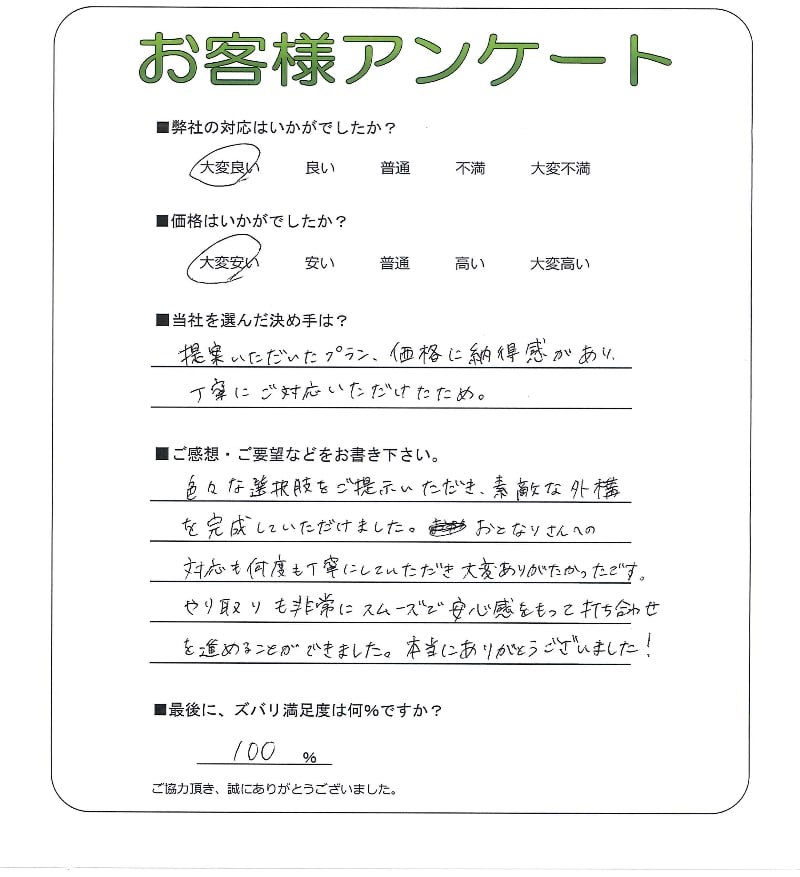 お客様アンケート
■弊社の対応はいかがでしたか？
大変良い 良い 普通 不満 大変不満
■価格はいかがでしたか？
大変安い 安い 普通 高い 大変高い
■当社を選んだ決め手は？
提案いただいたプラン、価格に納得感があり、
丁寧にご対応いただけたため。
■ご感想・ご要望などをお書き下さい。
色々な選択肢をご提示いただき、素敵な外構
を完成していただけました。おとなりさんへの
対応も何度も丁寧にしていただき大変ありがたかったです。
やり取りも非常にスムーズで安心感をもって打ち合わせ
を進めることができました。本当にありがとうございました！
■最後に、ズバリ満足度は何％ですか？
100 %
ご協力頂き、誠にありがとうございました。